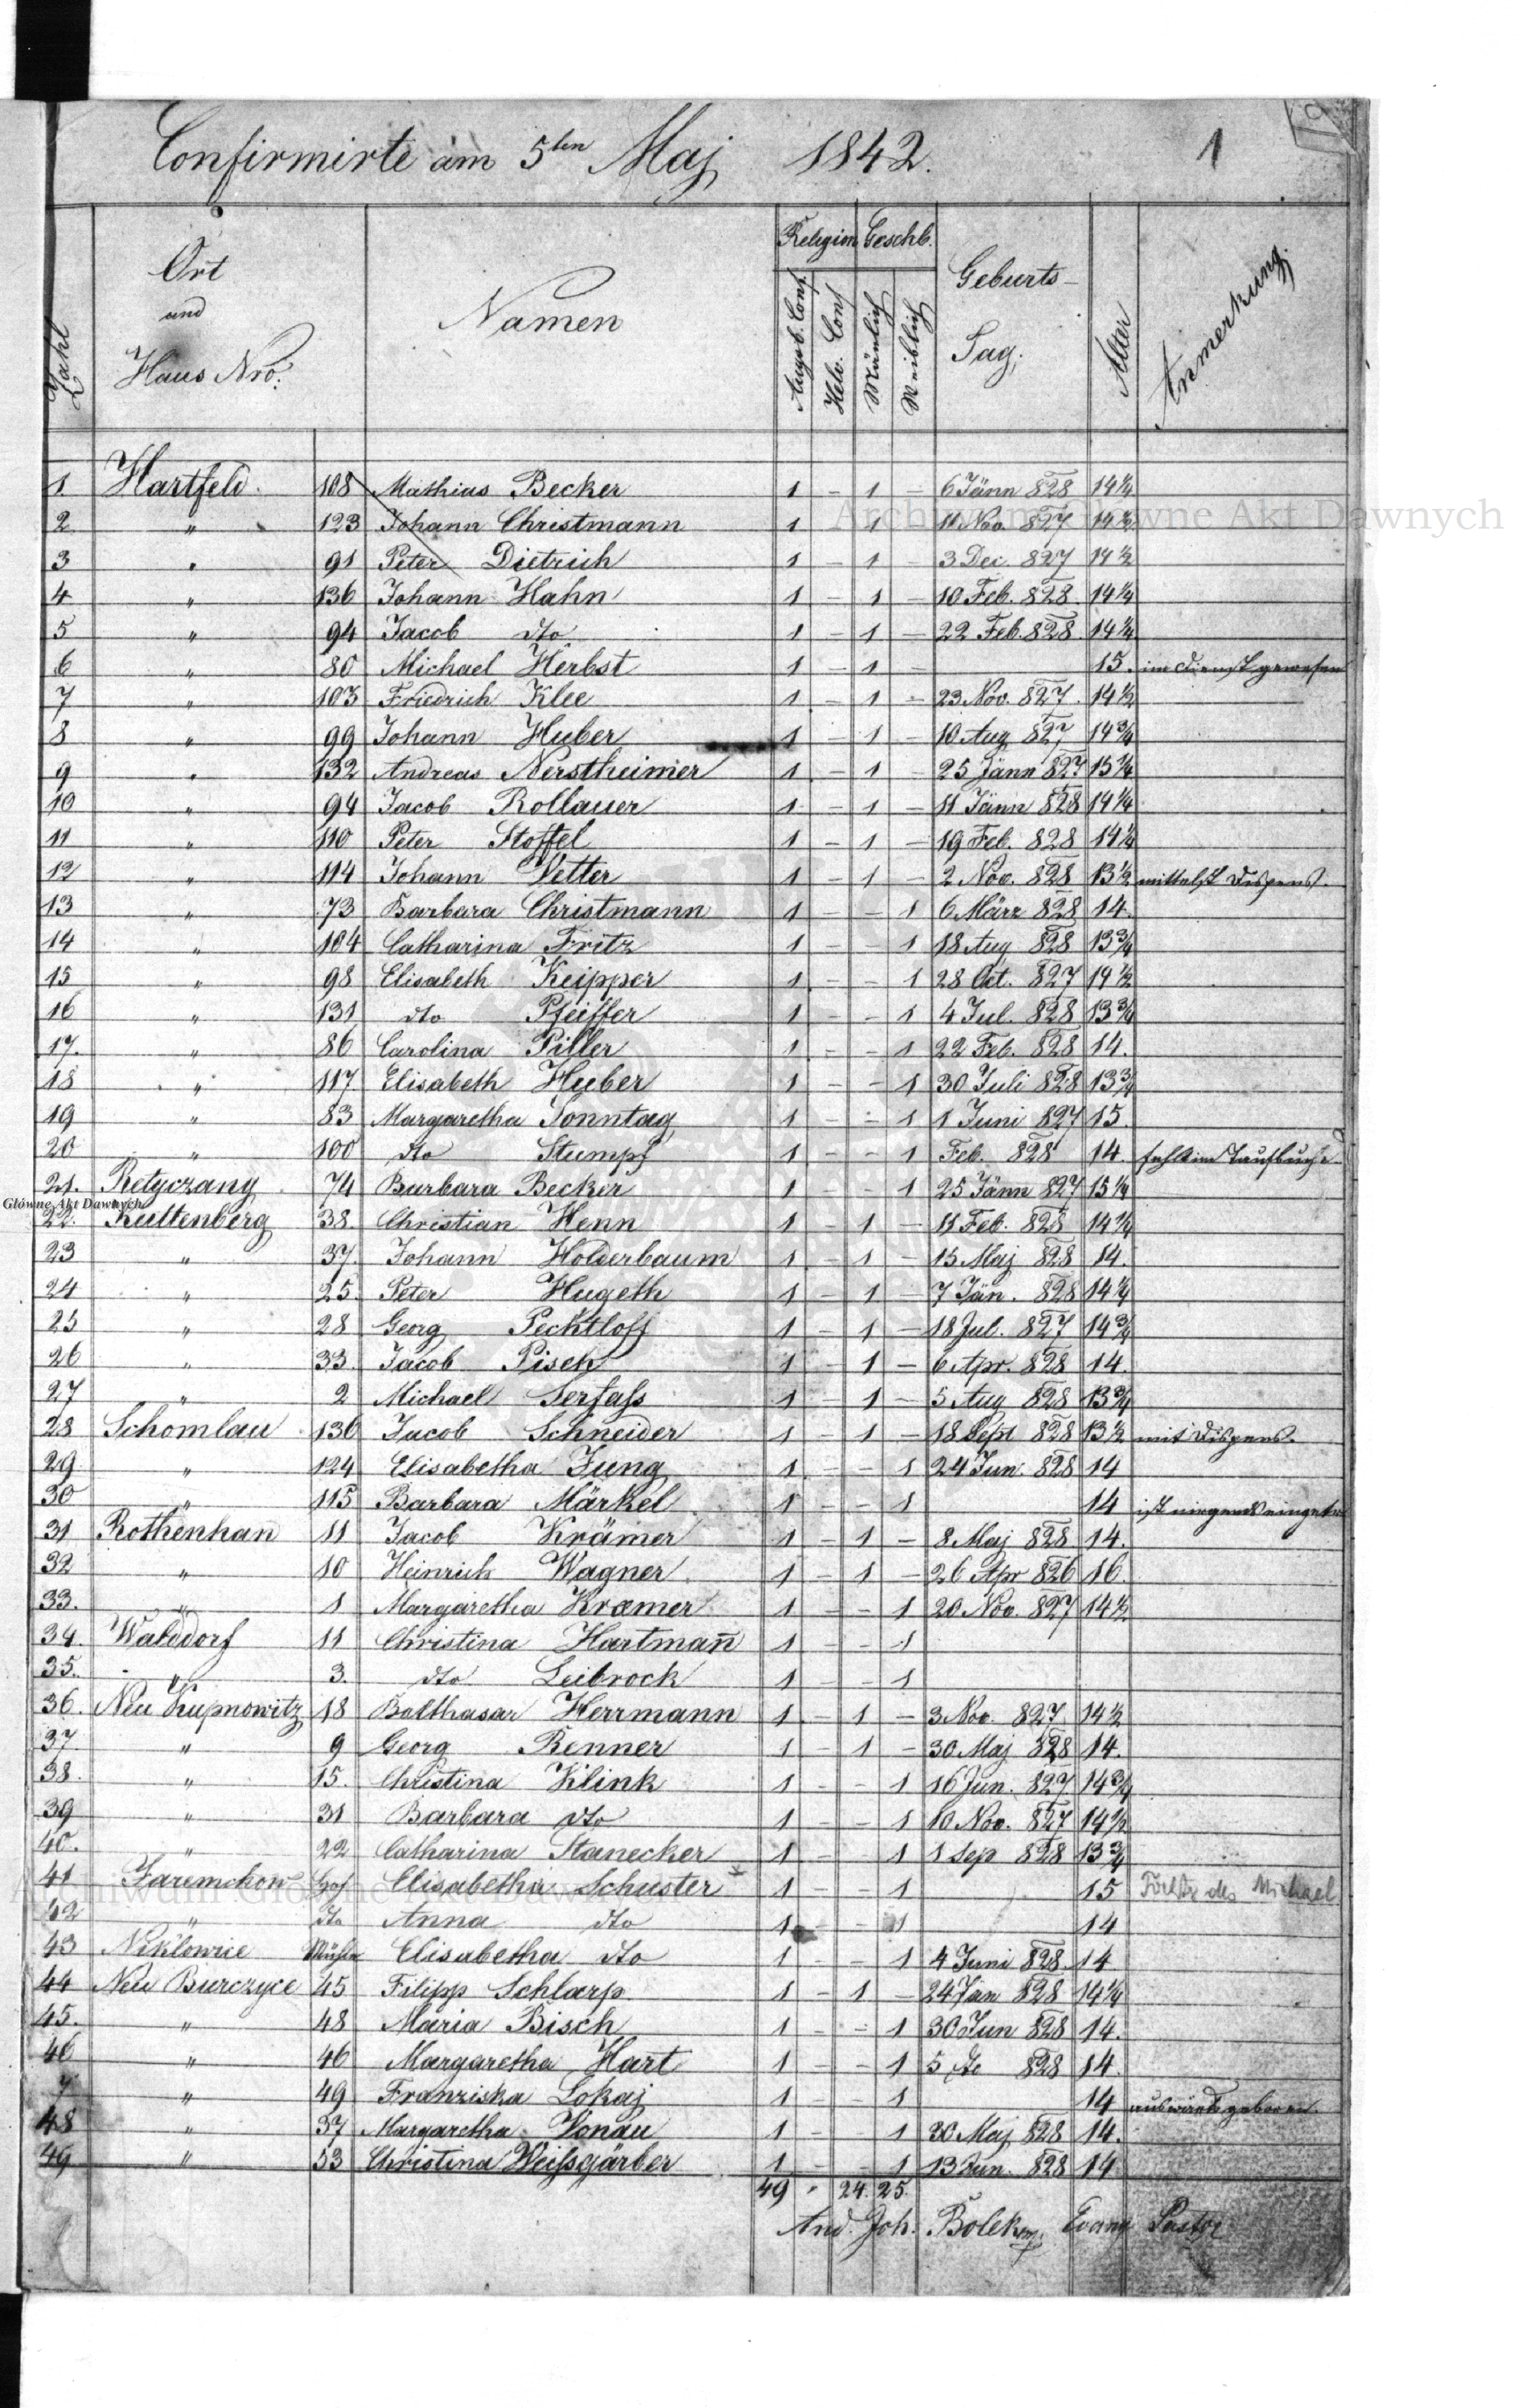 Confirmirte am 5ten Maj 1842. 1
Zahl
Ort und Haus Nro.
Namen
Religion Geschl.
Augsb. Conf.
Helv. Conf
Mänlich
Weiblich
Geburts-Tag.
Alter
Anmerkung.
1. Hartfeld. 108 Mathias Becker 1 - 1 - 6 Jänn 828 14¼
2 " 123 Johann Christmann 1 1 11 Nov. 827 14½
3 " 91 Peter Dietrich 1 - 1 - 3 Dec. 827 14½
4 " 136 Johann Hahn 1 - 1 - 10 Feb. 828. 14¼
5 " 94 Jacob dto 1 - 1 - 22 Feb. 828. 14¼
6 " 80 Michael Herbst 1 - 1 - 15. im Dienst gewesen
7 " 103 Friedrich Klee 1 - 1 - 23. Nov. 827. 14½
8 " 99 Johann Huber 1 - 1 - 10 Aug 827 14¾
9 " 132 Andreas Nerstheimer 1 - 1 - 25 Jänn 827 15¼
10 " 94 Jacob Rollauer 1 - 1 - 11 Jänn 828 14¼
11 " 110 Peter Stoffel 1 - 1 - 19 Feb. 828 14¼
12 " 114 Johann Vetter 1 - 1 - 2 Nov. 828 13½ mittelst Dispens.
13 " 73 Barbara Christmann 1 - - 1 6 März 828 14.
14 " 104 Catharina Fritz 1 - - 1 18 Aug 828 13¾
15 " 98 Elisabeth Keipper 1 - - 1 28 Oct. 827 14½
16 " 131 dto Pfeiffer 1 - - 1 4 Jul. 828 13¾
17. " 86 Carolina Piller 1 - - 1 22 Feb. 828 14.
18 " 117. Elisabeth Huber 1 - - 1 30 Juli 828 13¾
19 " 83 Margaretha Sonntag 1 - - 1 1 Juni 827 15.
20 " 100 dto Stumpf 1 - - 1 Feb. 828 14. fehlt im Taufbuche
21. Retyczany 74 Barbara Becker 1 - - 1 25 Jänn 827 15¼
22. Kuttenberg 38. Christian Henn 1 - 1 - 11 Feb. 828 14¼
23 " 37. Johann Holderbaum 1 - 1 - 15 Maj 828 14.
24 " 25. Peter Hugeth 1 - 1 - 7 Jän. 828 14¼
25 " 28 Georg Pechtloff 1 - 1 - 18 Jul. 827 14¾
26 " 33. Jacob Pisch 1 - 1 - 6 Apr. 828 14.
27 " 2 Michael Serfass 1 - 1 - 5 Aug 828 13¾
28 Schomlau 136 Jacob Schneider 1 - 1 - 18 Sept 828 13½ mit Dispens.
29 " 124 Elisabetha Jung 1 - - 1 24 Jun. 828 14
30 " 115 Barbara Märkel 1 - - 1 14 ist nirgends eingetr
31 Rothenhan 11 Jacob Krämer 1 - 1 - 8. Maj 828 14.
32 " 10 Heinrich Wagner 1 - 1 - 26 Apr 826 16.
33. " 1 Margaretha Kræmer 1 - - 1 20 Nov. 827 14½
34. Walddorf 11 Christina Hartman̄ 1 - - 1
35. " 3. dto Leibrock 1 - - 1
36. Neu Kupnowitz 18 Balthasar Herrmann 1 - 1 - 3 Nov. 827 14½
37 " 9 Georg Renner 1 - 1 - 30 Maj 828 14.
38. " 15. Christina Klink 1 - - 1 16 Jun. 827 14¾
39 " 31 Barbara dto 1 - - 1 10 Nov. 827 14½
40. " 22 Catharina Stanecker 1 - - 1 1 Sep 828 13¾
41 Hof Elisabetha Schuster 1 - - 1 15 des Michael
42 " dto Anna dto 1 1 14
43 Niklowice Mühle Elisabetha dto 1 - - 1 4 Juni 828. 14
44 Neu Burczyce 45 Filipp Schlarp 1 - 1 - 24 Jan 828 14¼
45. " 48 Maria Bisch 1 - - 1 30 Jun 828 14.
46 " 46 Margaretha Hart 1 - - 1 5 do 828 14
7 " 49 Franziska Lokaj 1 - - 1 14 auswärts geboren.
48 " 37 Margaretha Vonau 1 - 1 30 Maj 828 14.
49 " 53 Christina Weissgärber 1 - - 1 13 Jun. 828 14
49 " 24. 25.
And. Joh. Evang Pastor
Archiwum Główne Akt Dawnych
Główne Akt Dawnych
Archiwum Główne Akt Dawnych